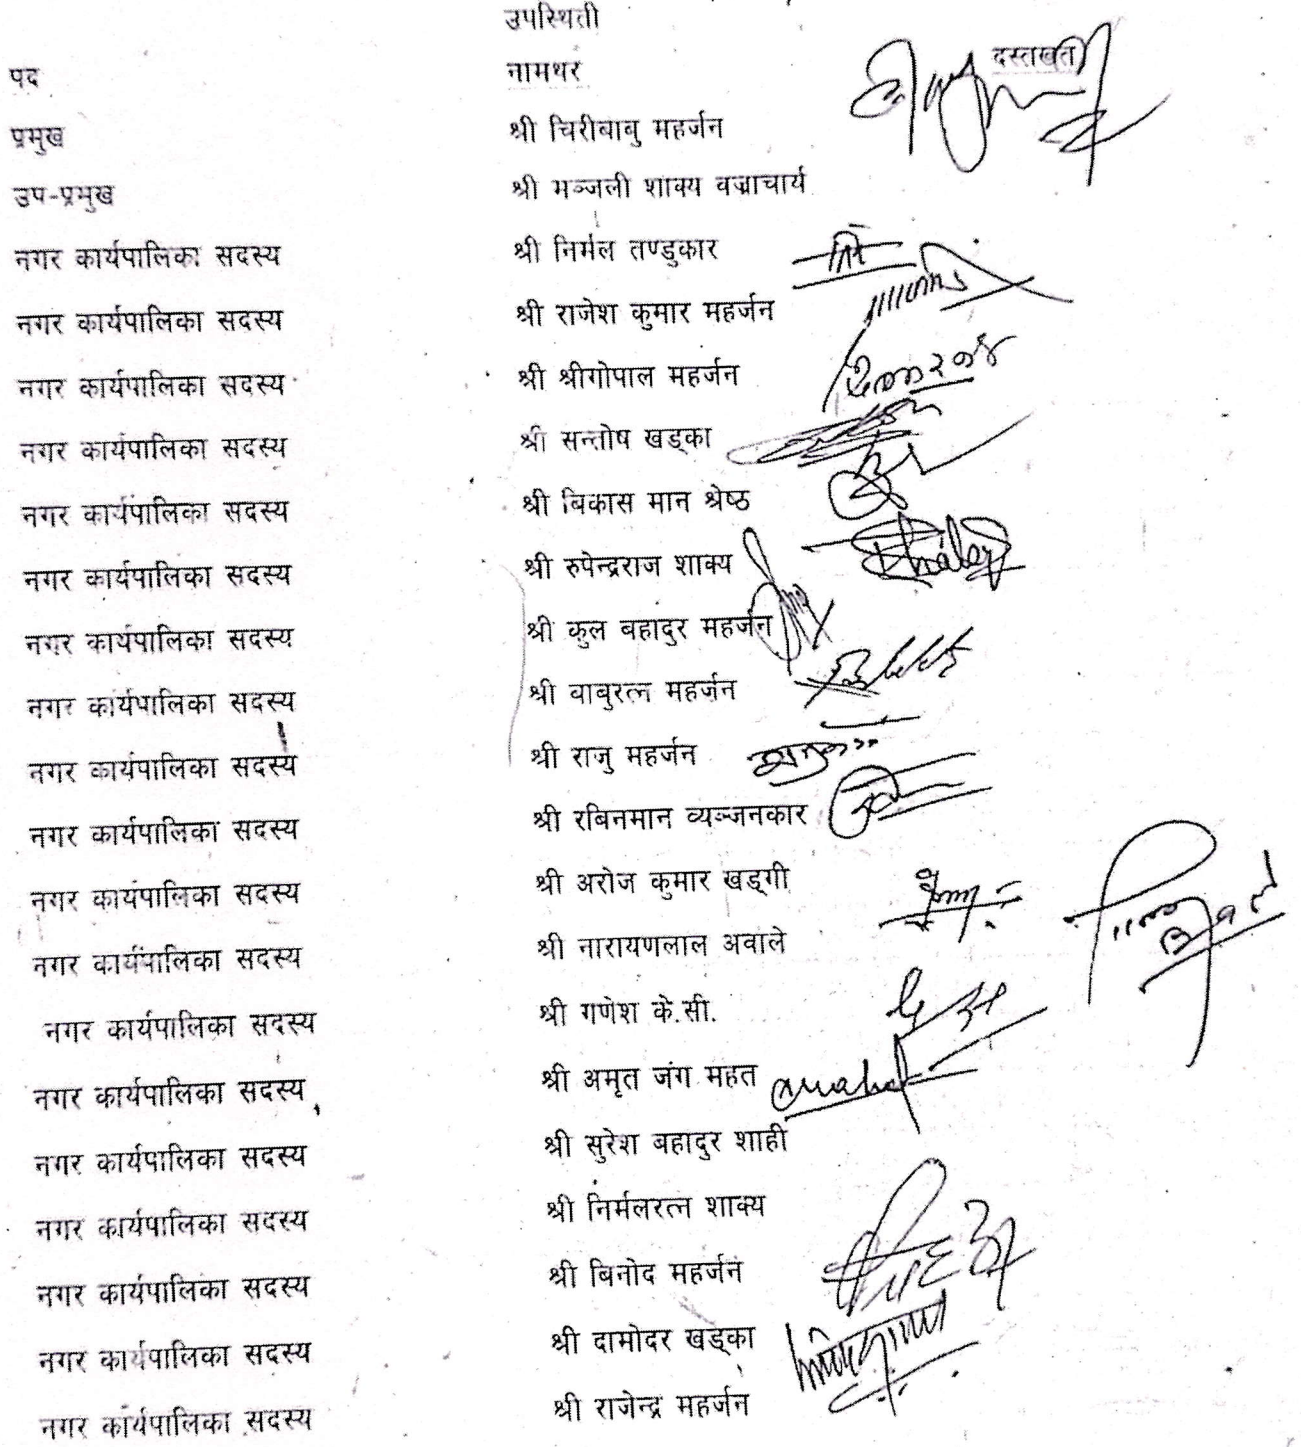 उपस्थिती
पद नामथर दस्तखत
प्रमुख श्री चिरीबाबु महर्जन
उप-प्रमुख श्री मञ्जली शाक्य वज्राचार्य
नगर कार्यपालिका सदस्य श्री निर्मल तण्डुकार
नगर कार्यपालिका सदस्य श्री राजेश कुमार महर्जन
नगर कार्यपालिका सदस्य श्री श्रीगोपाल महर्जन
नगर कार्यपालिका सदस्य श्री सन्तोष खड्का
नगर कार्यपालिका सदस्य श्री बिकास मान श्रेष्ठ
नगर कार्यपालिका सदस्य श्री रुपेन्द्रराज शाक्य
नगर कार्यपालिका सदस्य श्री कुल बहादुर महर्जन
नगर कार्यपालिका सदस्य श्री बाबुरत्न महर्जन
नगर कार्यपालिका सदस्य श्री राजु महर्जन
नगर कार्यपालिका सदस्य श्री रबिनमान व्यञ्जनकार
नगर कार्यपालिका सदस्य श्री अरोज कुमार खड्गी
नगर कार्यपालिका सदस्य श्री नारायणलाल अवाले
नगर कार्यपालिका सदस्य श्री गणेश के.सी.
नगर कार्यपालिका सदस्य श्री अमृत जंग महत
नगर कार्यपालिका सदस्य श्री सुरेश बहादुर शाही
नगर कार्यपालिका सदस्य श्री निर्मलरत्न शाक्य
नगर कार्यपालिका सदस्य श्री बिनोद महर्जन
नगर कार्यपालिका सदस्य श्री दामोदर खड्का
नगर कार्यपालिका सदस्य श्री राजेन्द्र महर्जन